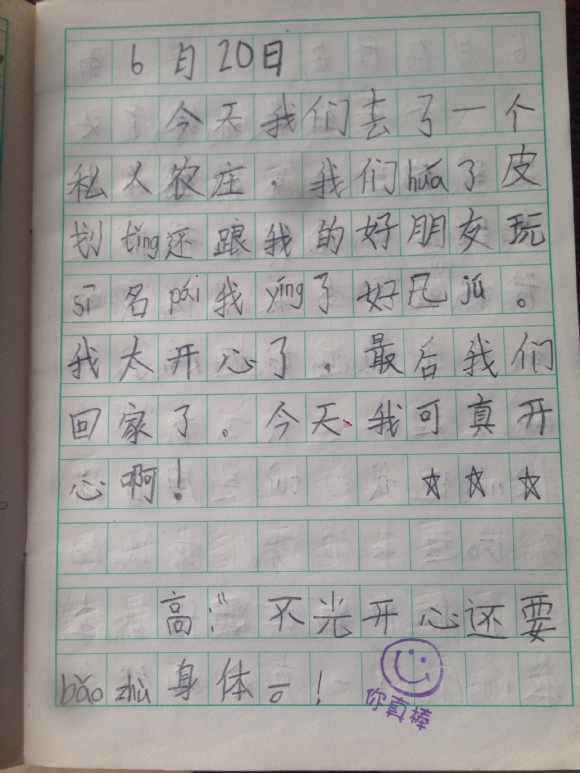 6月20日
今天我们去了一个
私人农庄，我们huá了皮
划tǐng还跟我的好朋友玩
sī名pái我yíng了好凡jú。
我太开心了，最后我们
回家了。今天我可真开
心啊！☆☆☆
高 不光开心还要
bǎo zhù身体！
你真棒